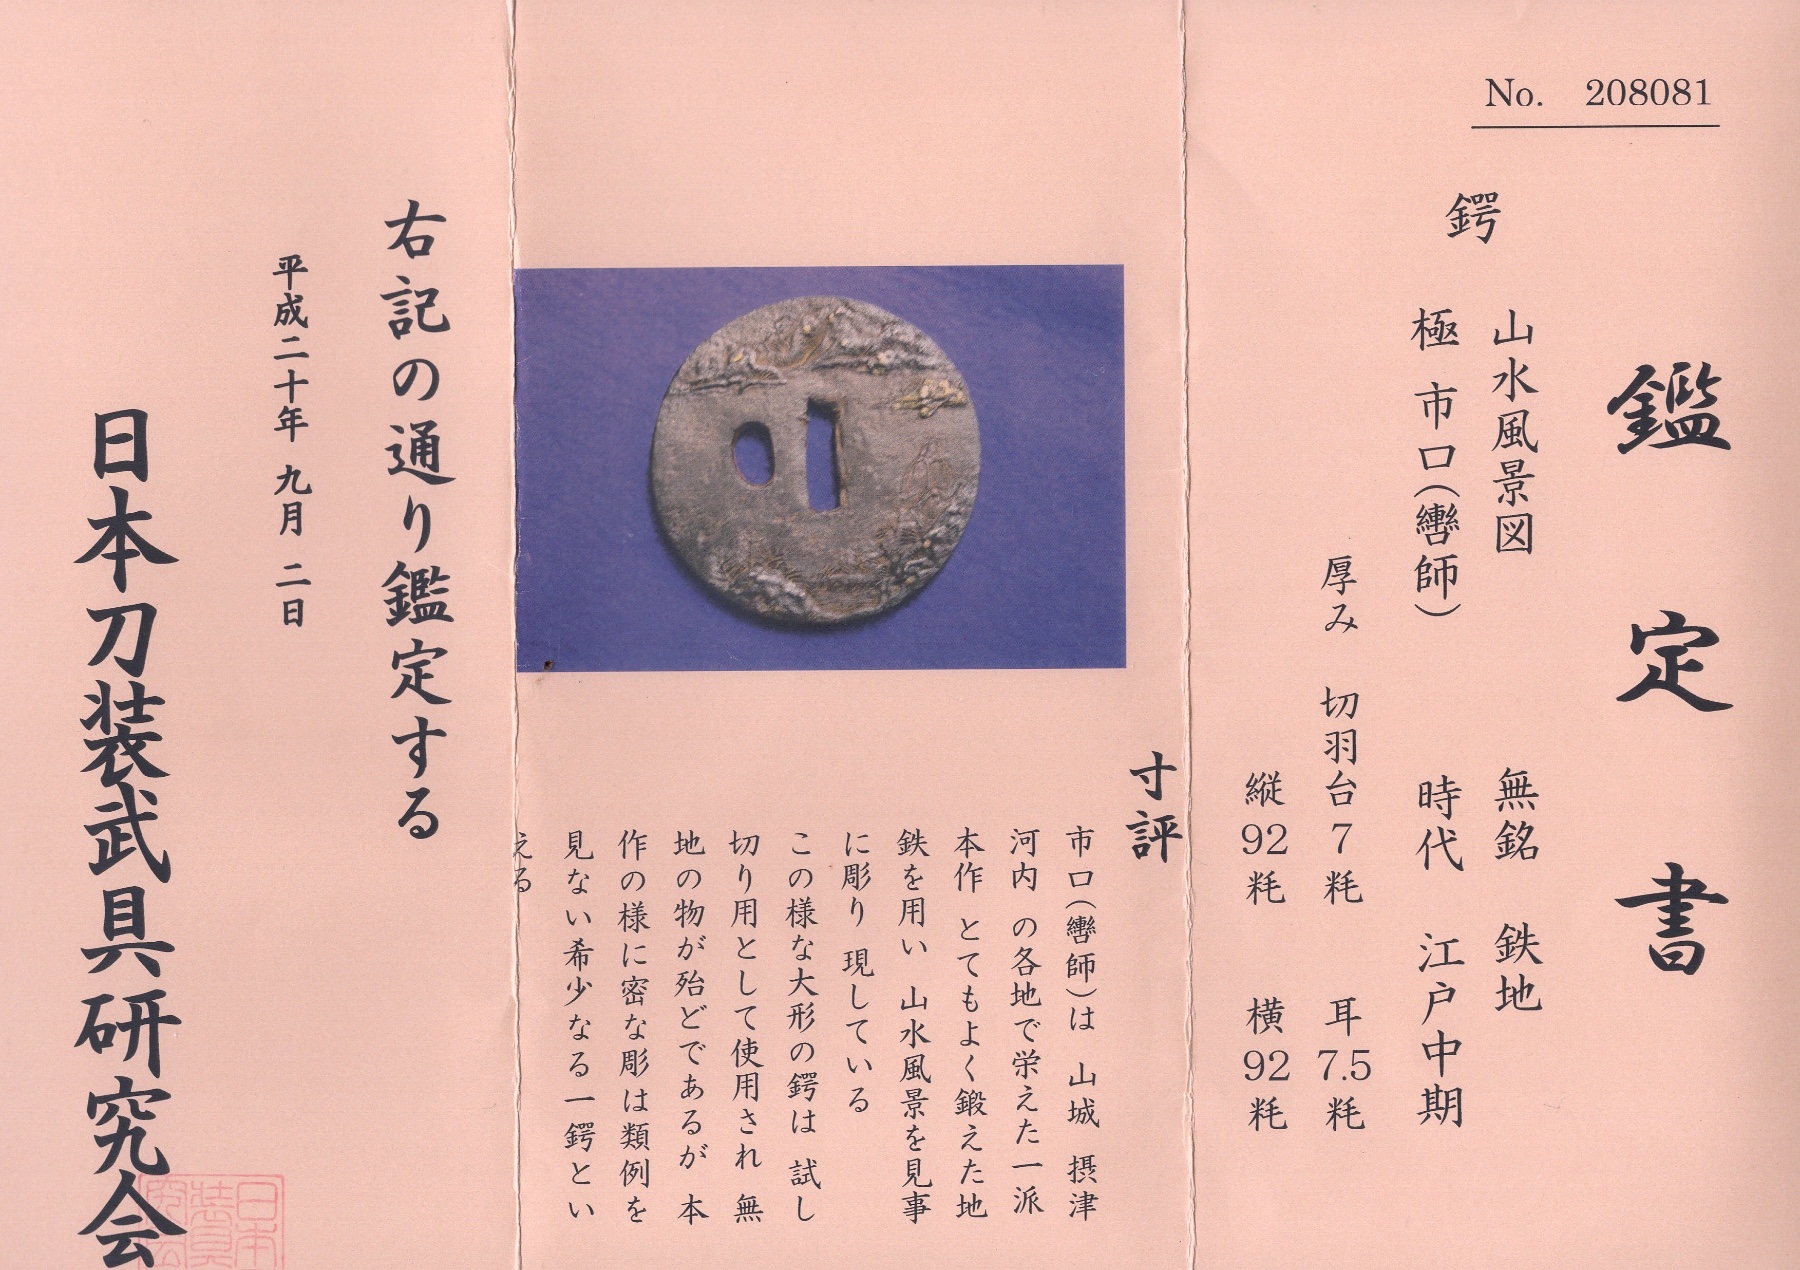 No. 208081
鑑定書
鍔
山水風景図 無銘 鉄地
極 市口(轡師) 時代 江戸中期
厚み 切羽台 7 粍 耳 7.5 粍
縦 92 粍 横 92 粍
寸評
市口(轡師)は 山城 摂津
河内 の各地で栄えた一派
本作 とてもよく鍛えた地
鉄を用い 山水風景を見事
に彫り 現している
この様な大形の鍔は 試し
切り用として使用され 無
地の物が殆どであるが 本
作の様に密な彫は類例を
見ない希少なる一鍔とい
える
右記の通り鑑定する
平成二十年 九月 二日
日本刀装武具研究会